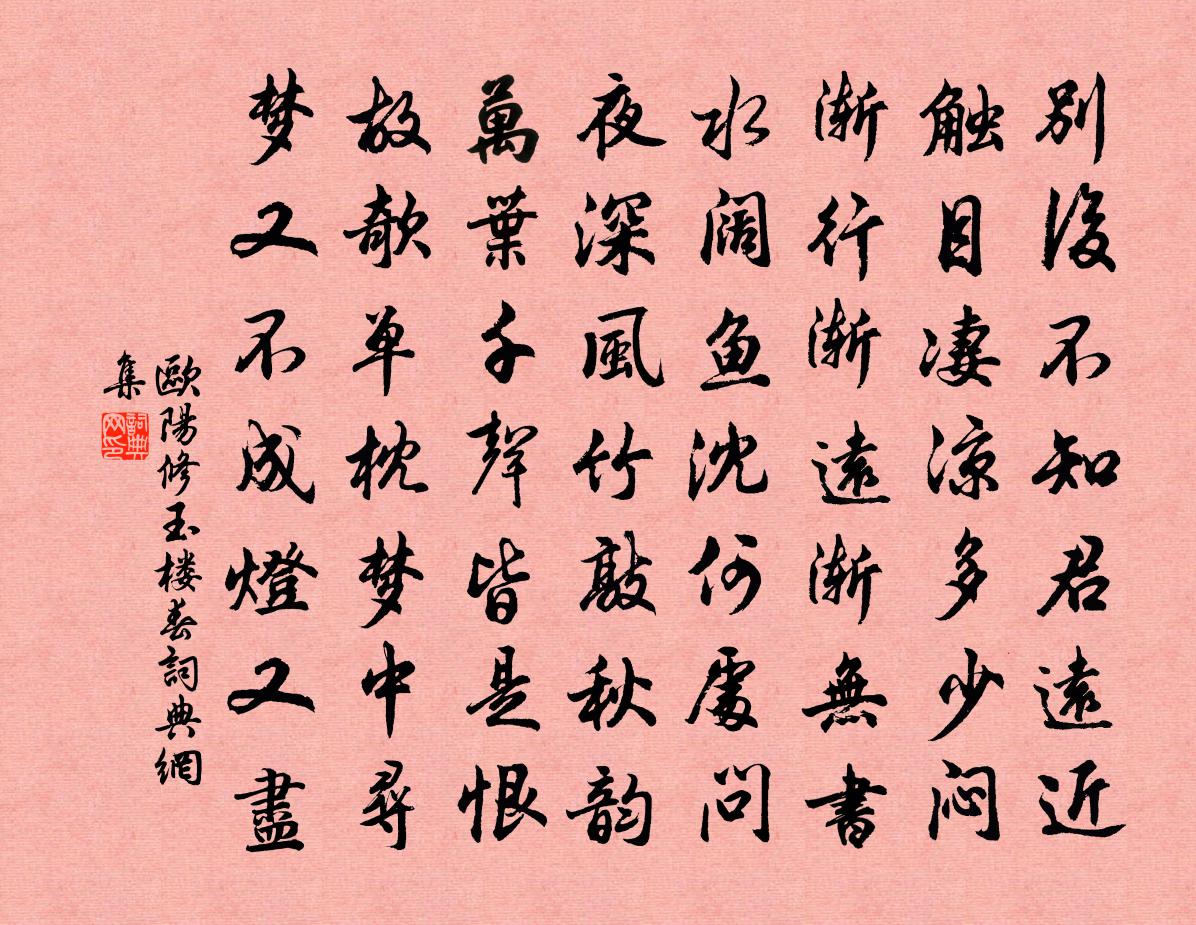 别後不知君遠近
触目凄凉多少闷
渐行渐遠渐無書
水阔鱼沈何處问
夜深風竹敲秋韵
萬葉千聲皆是恨
故欹单枕梦中尋
梦又不成燈又盡
歐陽修玉楼春詞典網
集
詞典
网印